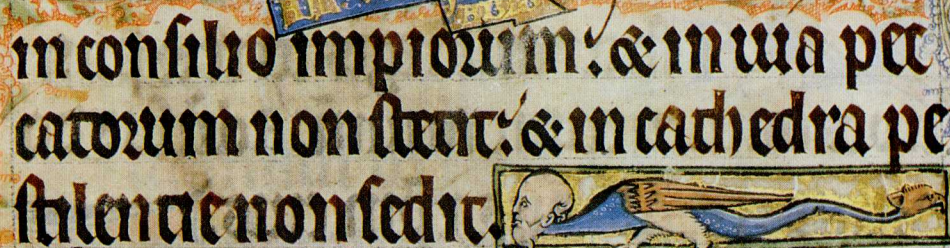 in consilio impiorum: & in uia pec
catorum non stetit: & in cathedra pe
stilentie non sedit.